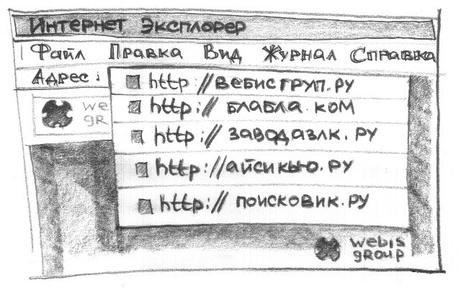 Интернет Эксплорер
Файл Правка Вид Журнал Справка
Адрес:
http://вебисгруп.ру
http://блабла.ком
http://заводазлк.ру
http://айсикью.ру
http://поисковик.ру
webis
group